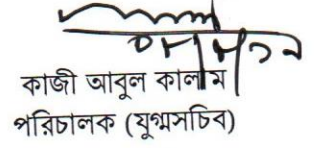 কাজী আবুল কালাম
পরিচালক (যুগ্মসচিব)